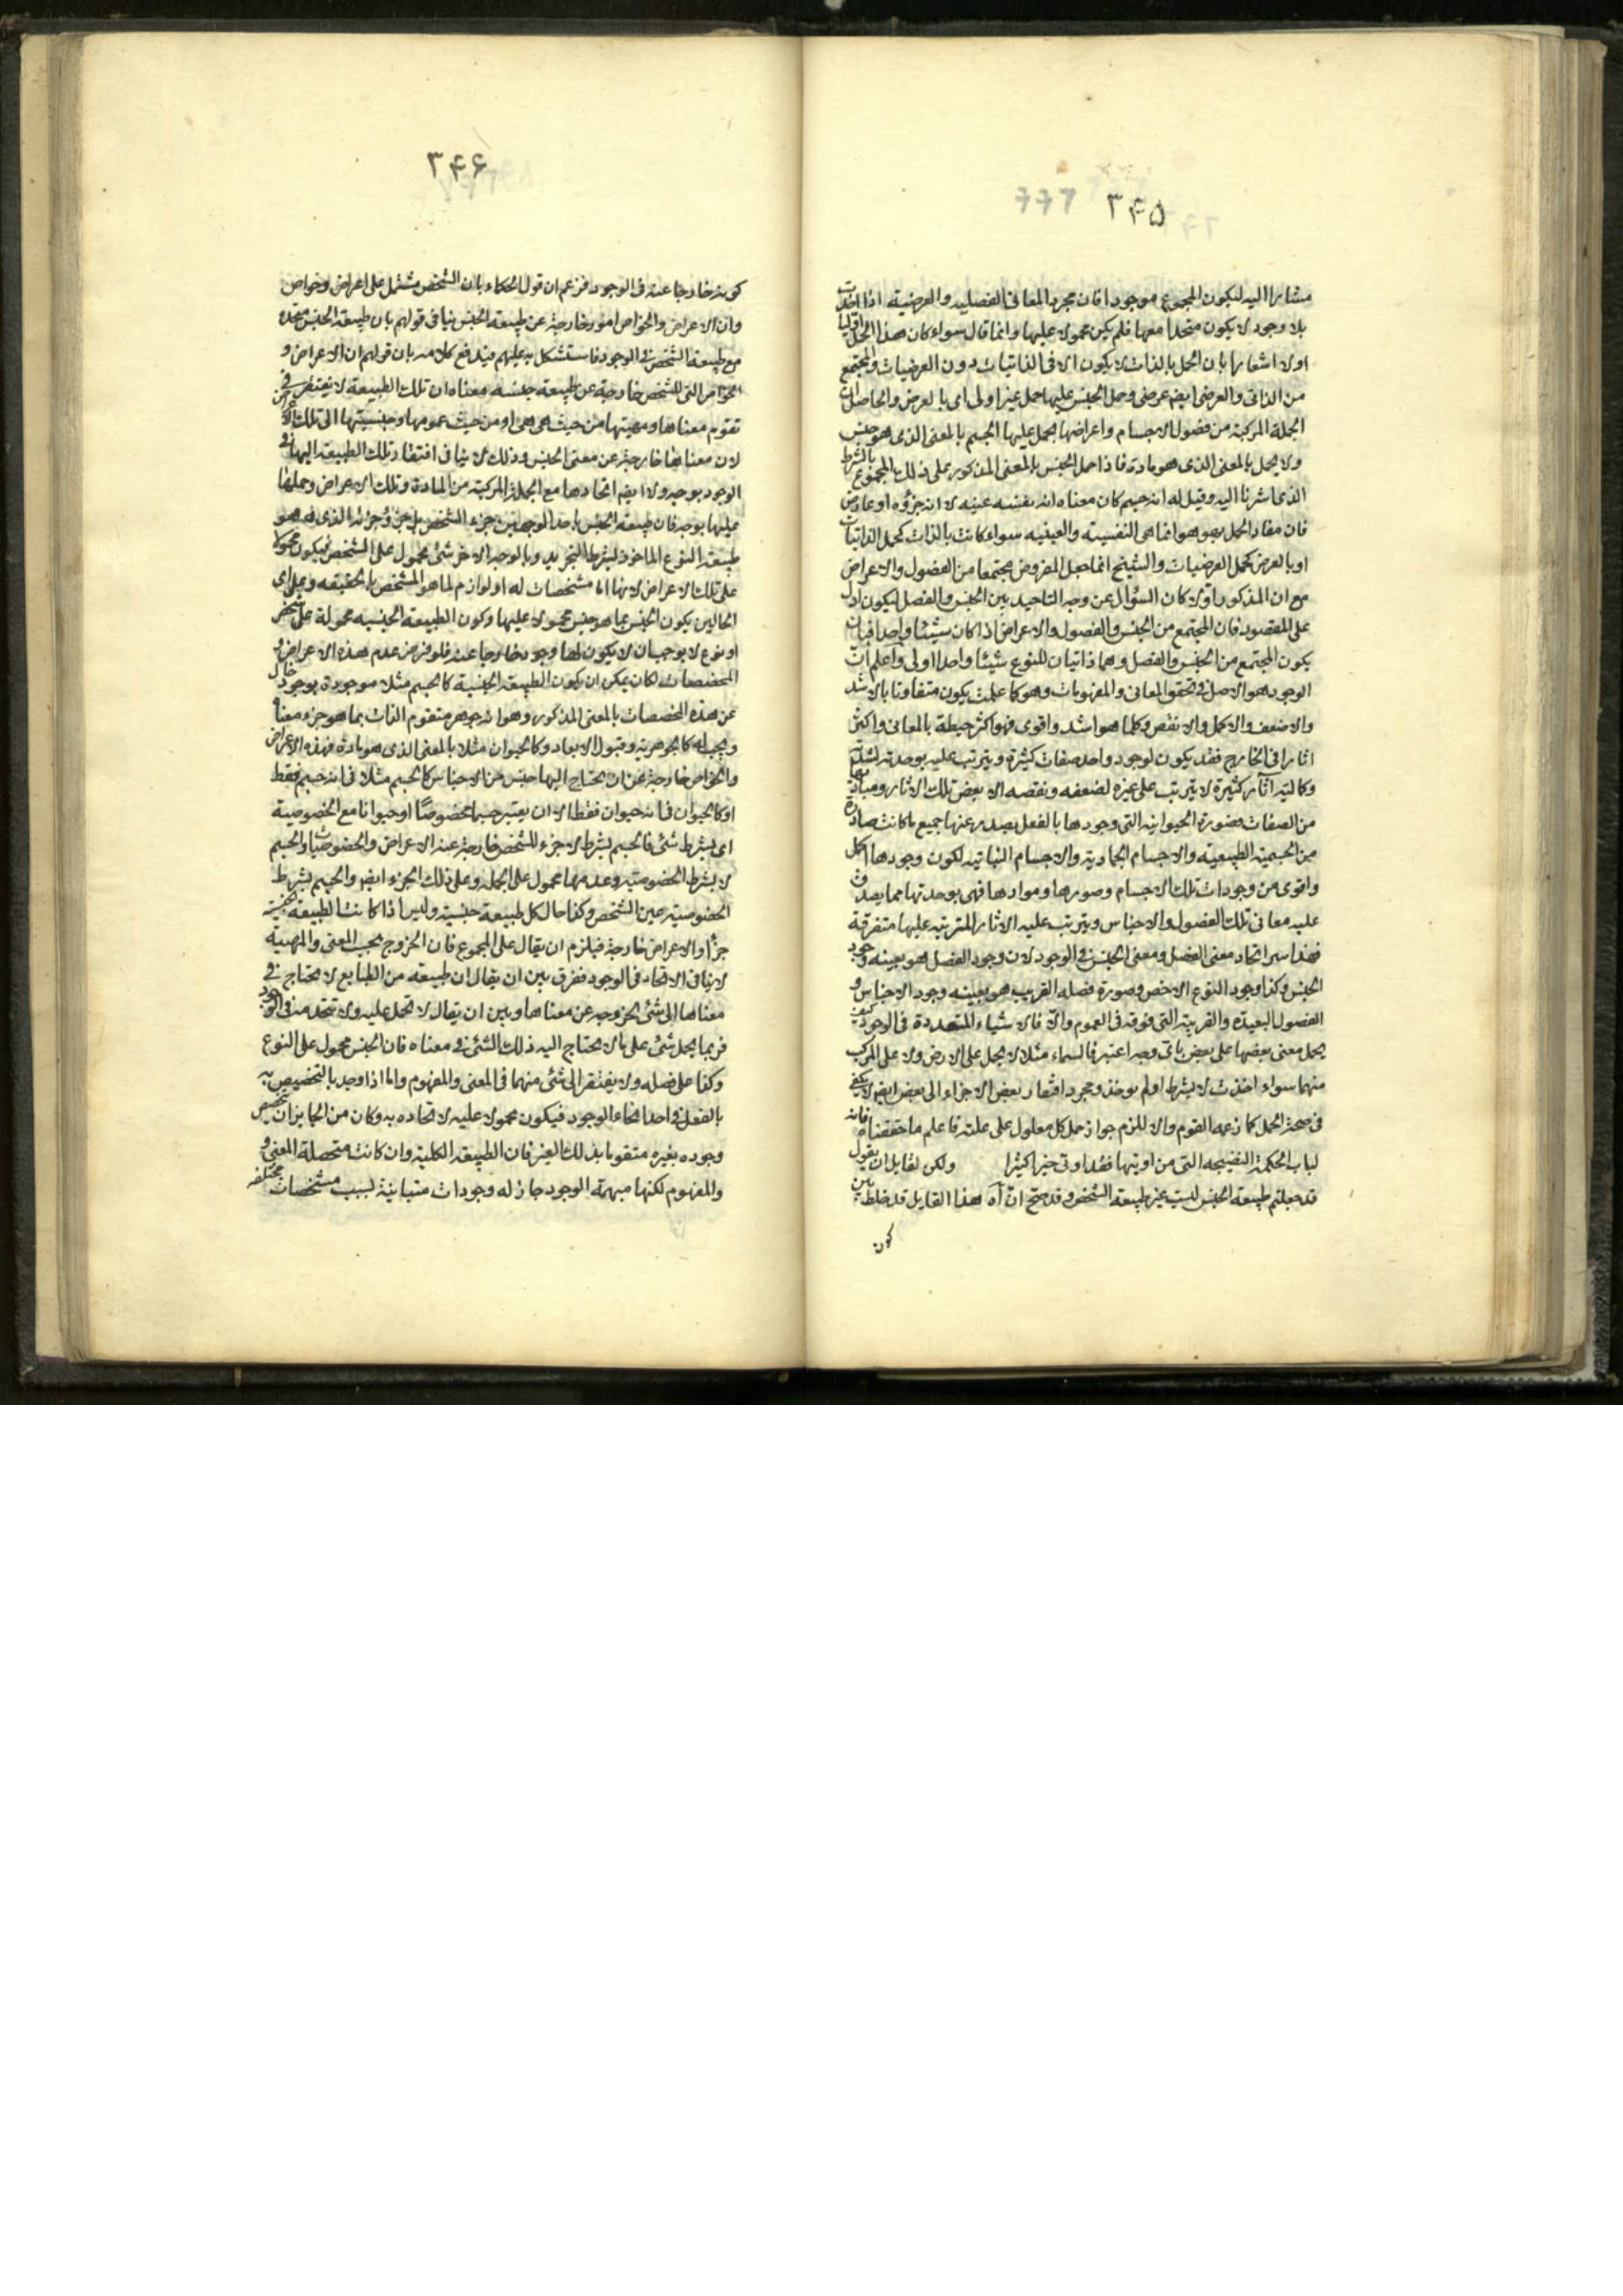 ۳۴۵
مشارا اليه ليكون المجموع موجودا فان مجرد المعانى الفصليه والعرضية اذا اخذت
بلا وجود لا يكون متحدا معها فلم يكن محمولا عليها وانما قال سواء كان هذا الحمل اوليا
اولا اشعارا بان الحمل بالذات لا يكون الا فى الذاتيات دون العرضيات والمجتمع
من الذاتى والعرضى ايضم عرضى وحمل الجنس عليها حمل غير اولى اى بالعرض والحاصل ان
الجملة المركبة من فصول الاجسام واعراضها يحمل عليها الجسم بالمعنى الذى هو جنس
ولا يحمل بالمعنى الذى هو مادة فاذا حمل الجنس بالمعنى المذكور على ذلك المجموع بالشرط
الذى اشرنا اليه وقيل له انه جسم كان معناه انه بنفسه عينه لا انه جزؤه او عارض
فان مفاد الحمل بهو هو انما هى النفسية والعينيه سواء كانت بالذات كحمل الذاتيات
او بالعرض كحمل العرضيات والشيخ انما جعل المفروض مجتمعا من الفصول والاعراض
مع ان المذكور اولا كان السؤال عن وجه التاحيد بين الجنس والفصل ليكون ادل
على المقصود فان المجتمع من الجنس والفصول والاعراض اذا كان شيئا واحدا فبان
يكون المجتمع من الجنس والفصل وهما ذاتيان للنوع شيئا واحدا اولى واعلم ان
الوجود هو الاصل فى تحقق المعانى والمفهومات وهو كما علمت يكون متفاوتا بالاشد
والاضعف والاكمل والانقص وكلما هو اشد واقوى فهو اكثر حيطة بالمعانى واكثر
اثارا فى الخارج فقد يكون لوجود واحد صفات كثيرة ويترتب عليه بوحدته لشدته
وكماليته آثار كثيرة لا يترتب على غيره لضعفه ونقصه الا بعض تلك الاثار ومباديها
من الصفات فصورة الحيوانيه التى وجودها بالفعل يصدر عنها جميع ما كانت صادرة
من الجسمية الطبيعيه والاجسام الجمادية والاجسام النباتيه لكون وجودها اكمل
واقوى من وجودات تلك الاجسام وصورها وموادها فهى بوحدتها مما يصدق
عليه معانى تلك الفصول والاجناس ويترتب عليه الاثار المترتبه عليها متفرقة
فهذا سر اتحاد معنى الفصل ومعنى الجنس فى الوجود لان وجود الفصل هو بعينه وجود
الجنس وكذا وجود النوع الاخص وصورة فصله القريب هو بعينه وجود الاجناس و
الفصول البعيده والقريبه التى فوقه فى العموم والا فالاشياء المتعددة فى الوجود كيف
يحمل معنى بعضها على بعض باى وجه اعتبر فالسماء مثلا لا يحمل على الارض ولا على المركب
منهما سواء اخذت لا بشرط او لم يوخذ ومجرد افتقار بعض الاجزاء الى بعض ايضم لا يكفى
فى صحة الحمل كما زعمه القوم والا للزم جواز حمل كل معلول على علته فاعلم ما حققناه فانه
لباب الحكمة النضيجه التى من اوتيها فقد اوتى خيرا كثيرا ولكن لقايل ان يقول
قد جعلتم طبيعة الجنس ليست غير طبيعة الشخص وقد صح ان آه هذا القايل قد خلط بين
كون
۳۴۶
كونه خارجا عنه فى الوجود فزعم ان قول الحكماء بان الشخص مشتمل على اعراض وخواص
وان الاعراض والخواص امور خارجة عن طبيعة الجنس ينافى قولهم بان طبيعة الجنس متحدة
مع طبيعة الشخص فى الوجود فاستشكل به عليهم فيندفع كلامه بان قولهم ان الاعراض و
الخواص التى للشخص خارجة عن طبيعة جنسه معناه ان تلك الطبيعة لا يفتقر فى
تقوم معناها ومهيتها من حيث هى هى او من حيث عمومها وجنسيتها الى تلك الاعراض
لان معناها خارجة عن معنى الجنس وذلك لا ينافى افتقار تلك الطبيعة اليها فى
الوجود بوجه ولا ايضم اتحادها مع الجملة المركبة من المادة وتلك الاعراض وحملها
عليها بوجه فان طبيعة الجنس باحد الوجهين جزء الشخص بل جزء جزئه الذى هو
طبيعة النوع الماخوذ بشرط التجريد وبالوجه الاخر شئ محمول على الشخص فيكون محمولا
على تلك الاعراض لانها اما مشخصات له او لوازم لما هو المشخص بالحقيقه وعلى اى
الحالين يكون الجنس بما هو جنس محمولا عليها وكون الطبيعة الجنسيه محمولة على شخص
او نوع لا يوجب ان لا يكون لها وجود خارجا عنه فلو فرض عدم هذه الاعراض و
المخصصات لكان يمكن ان يكون الطبيعة الجنسية كالجسم مثلا موجودة بوجود خال
عن هذه المخصصات بالمعنى المذكور وهو انه جوهر متقوم الذات بما هو جزء معناه
ويجب له كالجوهرية وقبول الابعاد وكالحيوان مثلا بالمعنى الذى هو مادة فهذه الاعراض
والخواص خارجة عن ان يحتاج اليها جنس من الاجناس كالجسم مثلا فى انه جسم فقط
او كالحيوان فى انه حيوان فقط الا ان يعتبر جسما مخصوصا او حيوانا مع الخصوصية
اى بشرط شئ فالجسم بشرط لا جزء للشخص خارجة عنه الاعراض والخصوصيات والجسم
لا بشرط الخصوصية وعدمها محمول على الجملة وعلى ذلك الجزء ايضم والجسم بشرط
الخصوصية عين الشخص وكذا حال كل طبيعة جنسية وليس اذا كانت الطبيعة الجنسية
جزأ والاعراض خارجة فيلزم ان يقال على المجموع فان الخروج بحسب المعنى والمهية
لا ينافى الاتحاد فى الوجود ففرق بين ان يقال ان طبيعة من الطبايع لا يحتاج فى
معناها الى شئ لخروجه عن معناها وبين ان يقال لا تحمل عليه ولا تتحد معه فى الوجود
فربما يحمل شئ على ما لا يحتاج اليه ذلك الشئ فى معناه فان الجنس محمول على النوع
وكذا على فصله ولا يفتقر الى شئ منهما فى المعنى والمفهوم واما اذا وجد بالتخصيص به
بالفعل فى احد انحاء الوجود فيكون محمولا عليه لاتحاده به وكان من الجايز ان تخصيص
وجوده بغيره متقوما بذلك الغير فان الطبيعة الكلية وان كانت متحصلة المعنى و
والمفهوم لكنها مبهمة الوجود جاز له وجودات متباينة لسبب مشخصات مختلفه